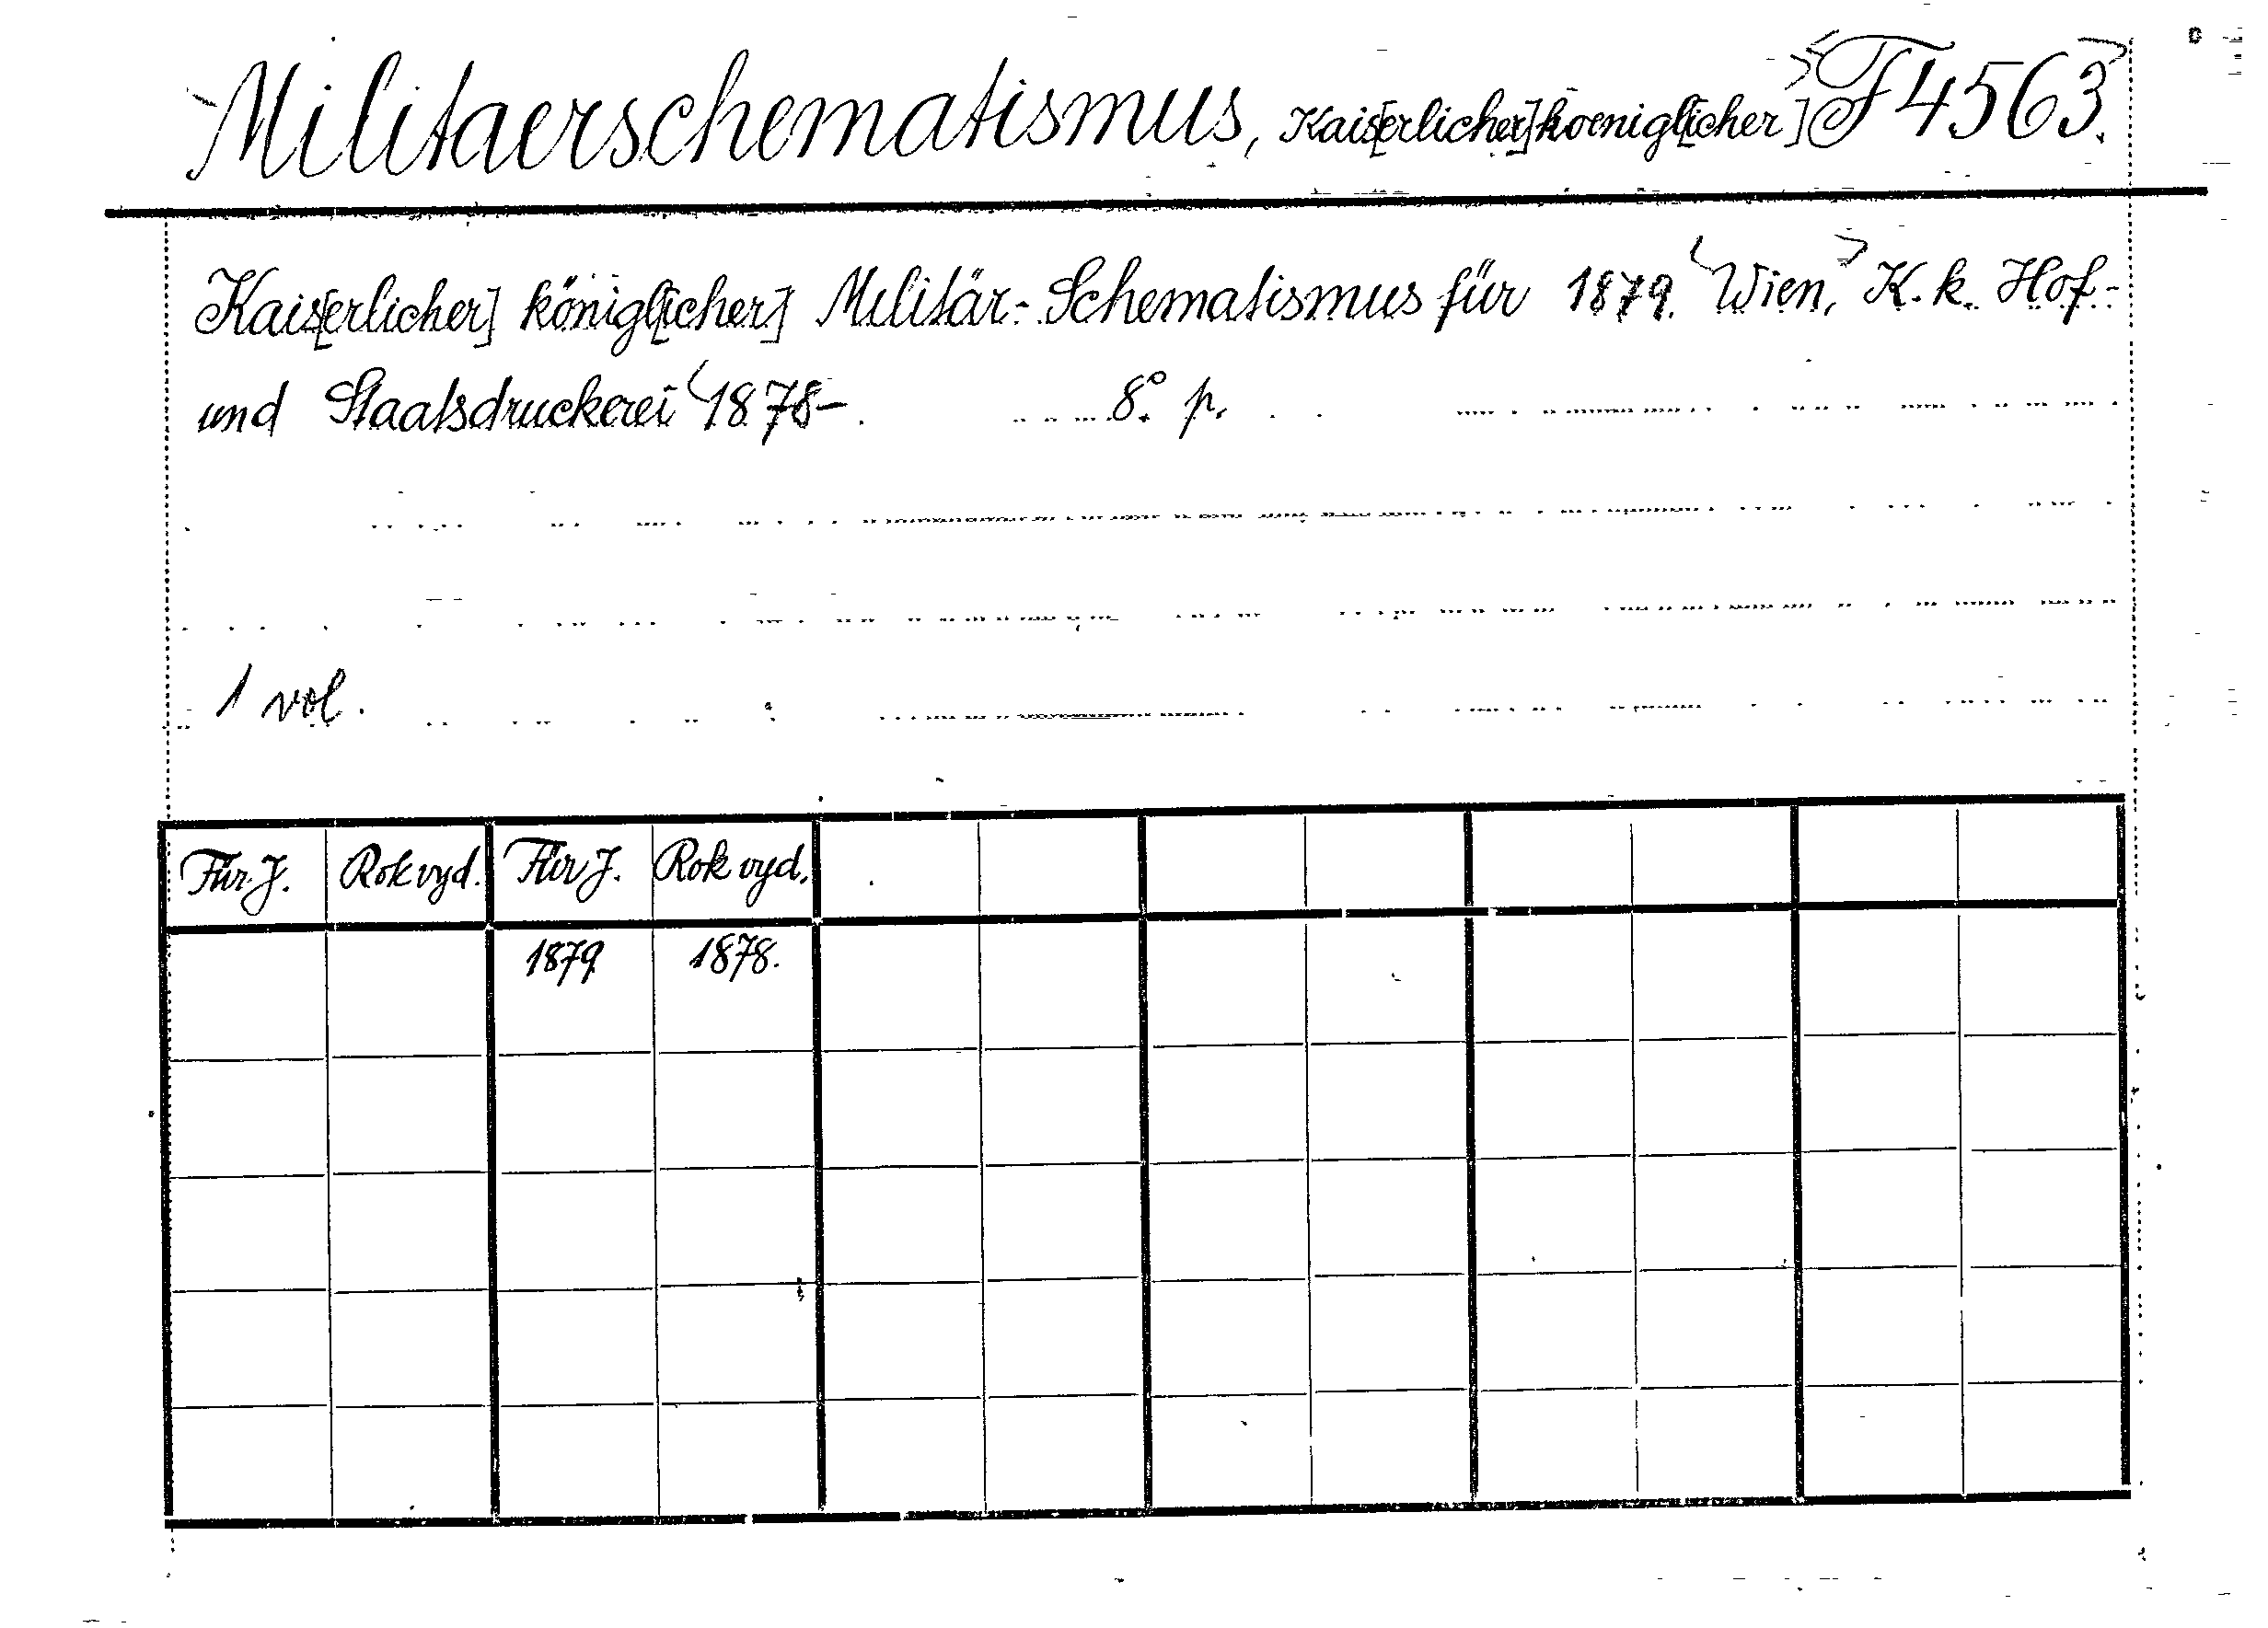 Militaerschematismus, Kais[erlicher] koenigl[icher] F 4563.
Kais[erlicher] königl[icher] Militär-Schematismus für 1879. Wien, K. k. Hof-
und Staatsdruckerei 1878-. 8° p.
1 vol.
Für J. Rok vyd. Für J. Rok vyd.
1879 1878.